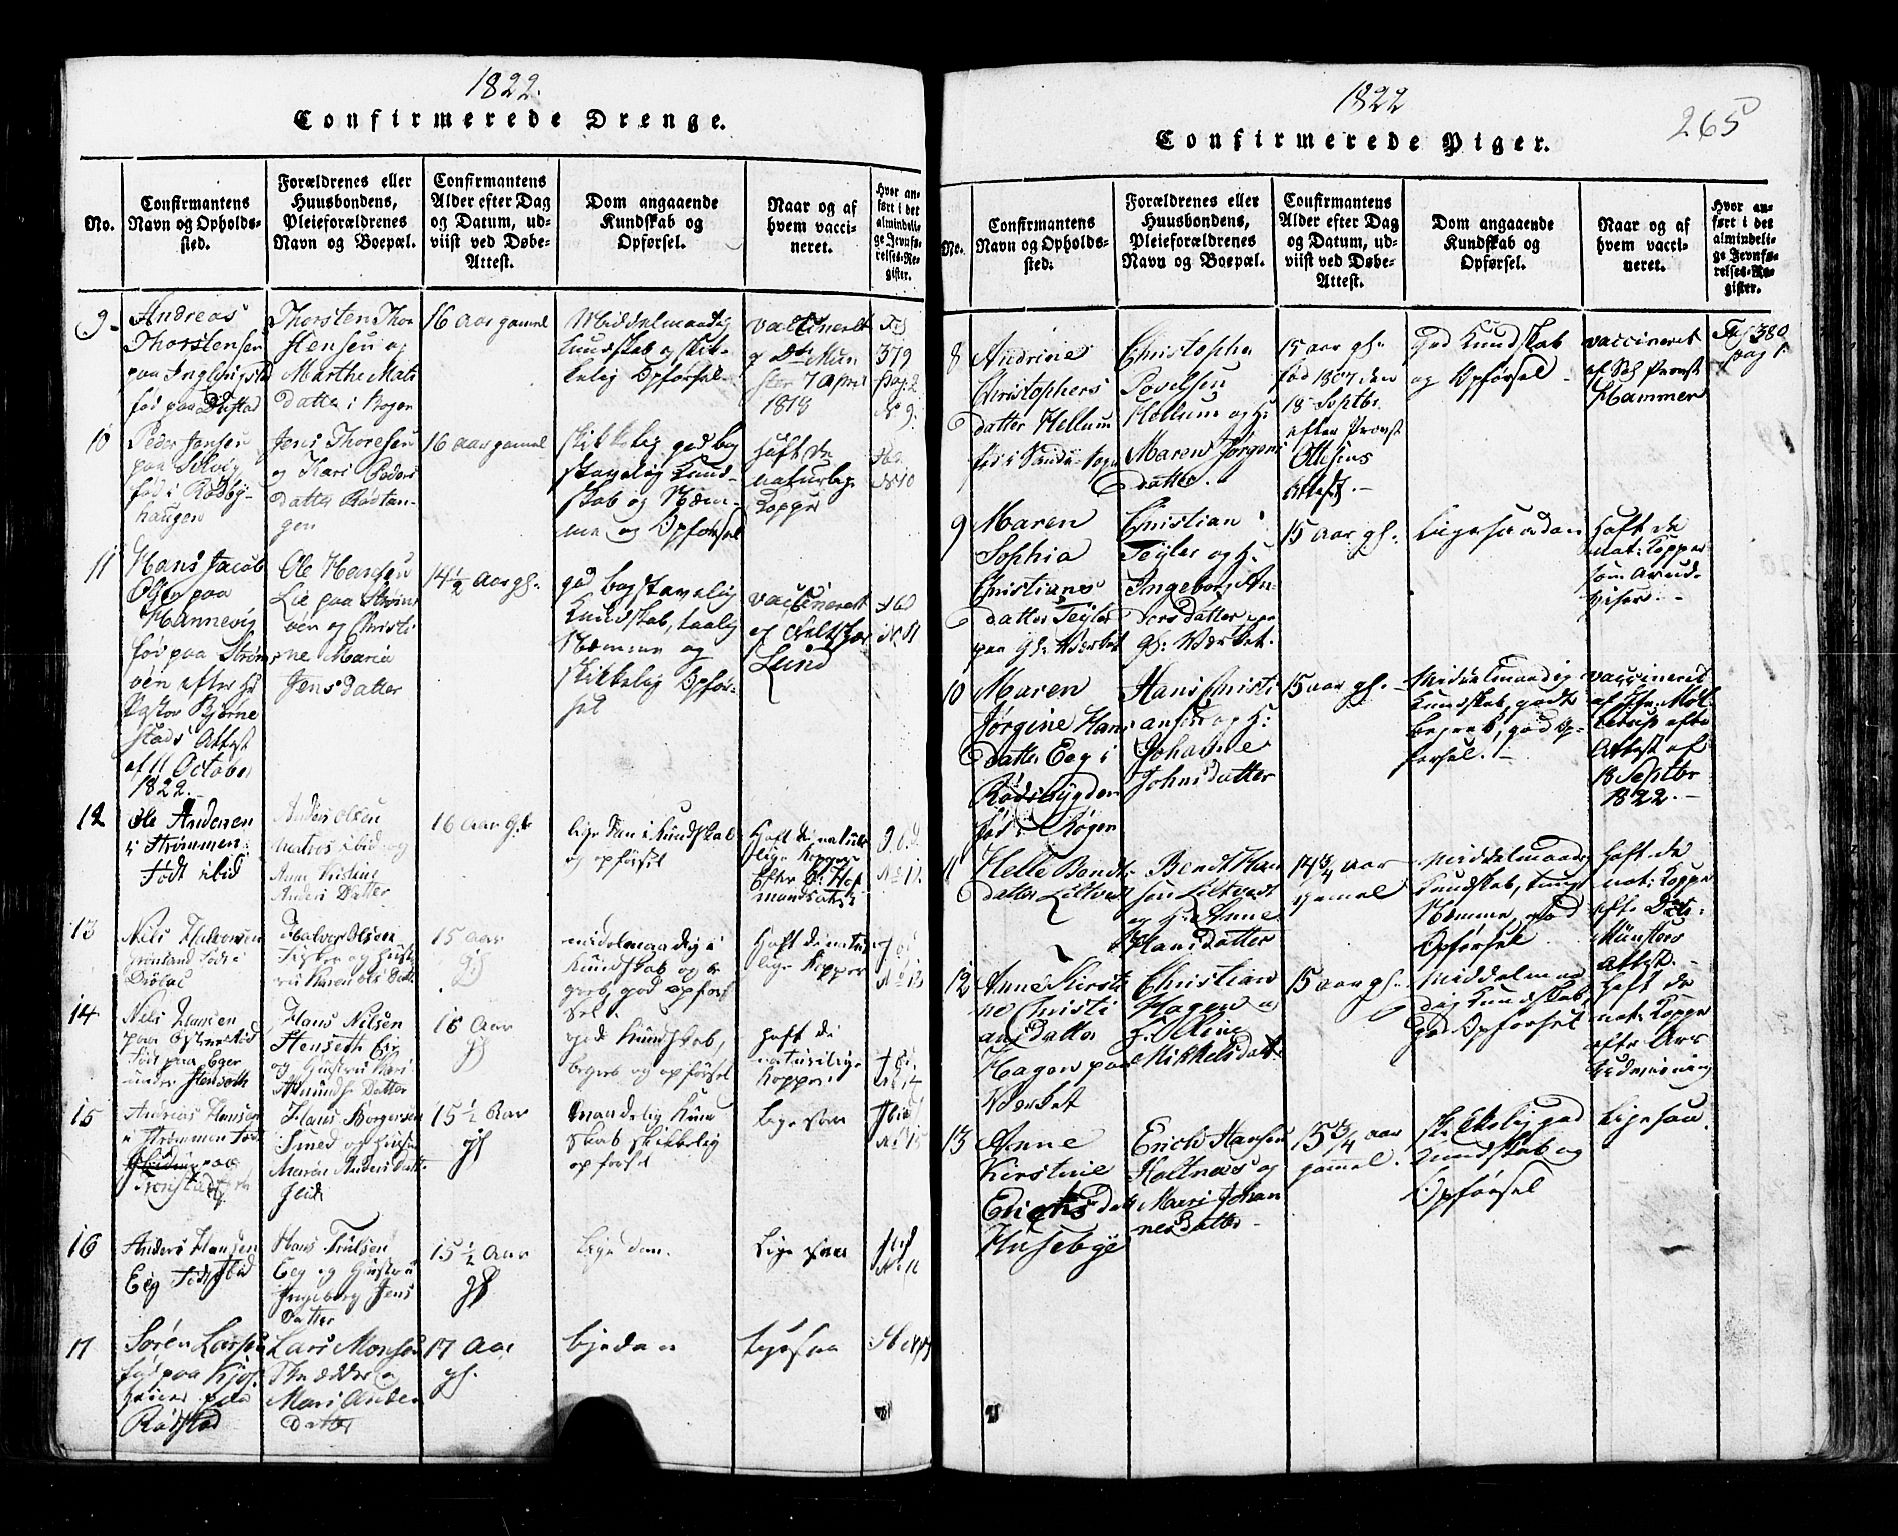 1822.
Confirmerede Drenge.
No.
Confirmantens
Navn og Opholds-
sted.
Forældrenes eller
Huusbondens,
Pleieforældrenes
Navn og Boepæl.
Confirmantens
Alder efter Dag
og Datum, ud-
viist ved Døbe-
Attest.
Dom angaaende
Kundskab og
Opførsel.
Naar og af
hvem vacci-
neret.
Hvor an-
ført i det
almindeli-
ge Jevnfø-
relses-Re-
gister.
9
Andreas
Thorstensen
paa
fød paa
Thorsten Thor
Hensen og
Marthe Mati
datter i Røgen
16 aar gamel
Middelmaadig
kundskab og skik-
kelig Opførsel
vaccineret
7 April
1818
379
pag. 2
No 9.
10
Peder Jensen
paa Selvig
fød i Rødby-
haugen
Jens Thoresen
og Kari Peders
datter Rødtan-
gen
16 aar gamel
skikkelig god bog
stavelig Kund-
skab og Nem-
me og Opførsel
haft de
naturlige
Kopper
No 10
11
Hans Jacob
Olsen paa
Hannevig
fød paa Strøm-
men efter Hr
Pastor Bjørne
stads Attest
af 11 October
1822.
Ole Hansen
Lie paa Strøm
men og Christi
ne Maria
Jensdatter
14 1/2 Aar gl.
god bogstavelig
Kundskab,
Nemme og
skikkelig Opfør-
sel
vaccineret
af Feltskær
Lund
No 11
12
Ole Andersen
i Strømmen
født ibid
Anders Olsen
Matros ibid og
Anne Kirstine
Anders Datter
16 Aar gl
lige dan i kundskab
og opførsel
Haft de natur
lige Kopper
Efter Hr. Hof
mands Attest
No 12
13
Niels Halvorsen
Grønland født i
Drøbac
Halvor Olsen
Fisker og Hust
ru Karen Ols Datt
15 aar
gl
midelmaadig i
Kundskab og be
greb, god opfør
sel.
Haft de natur
lige Kopper
No 13
14
Niels Hansen
paa Østnerstød
født paa Eger
under Henseth
Hans Nilsen
Henseth Eger
og Hustru Kari
Amunds Datter
16 Aar
gl
god Kundskab,
begreb og opførsel
haft de
naturlige
Kopper
No 14
15
Andreas Hansen
i Strømmen fød
Hans Borgersen
Smed og Hustru
Maren Anders Datt
15 1/2 Aar
gl
maadelig Kun
skab skikkelig
opførsel
Lige saa
No 15
16
Anders Hansen
Eeg født ibid
Hans Trulsen
Eeg og Hustru
Ingeborg Jens
Datter
15 1/2 Aar
gl
Lige dan.
Lige saa
17
Søren Larsen
fød paa
paa
Rødstad
Lars Monsen
Skredder og
Mari Anders
Datter
17 Aar
gl.
ligedan
ligesaa
1822
265
Confirmerede Piger.
No.
Confirmantens
Navn og Opholds-
sted.
Forældrenes eller
Huusbondens,
Pleieforældrenes
Navn og Boepæl.
Confirmantens
Alder efter Dag
og Datum, ud-
viist ved Døbe-
Attest.
Dom angaaende
Kundskab og
Opførsel.
Naar og af
hvem vacci-
neret.
Hvor an-
ført i det
almindeli-
ge Jevnfø-
relses-Re-
gister.
8
Andrine
Christophers
datter Hellum
fød i Sande Sogn
Christopher
Povelsen
Hellum og H:
Maren Jørgens
datter.
15 aar gl.
fød 1807, den
18 Septbr.
efter Provst
Ottesens
Attest.
God Kundskab
og Opførsel
vaccineret
af Provst
Hammer
380
pag 1.
9
Maren
Sophia
Christians
datter Tejler
paa Gl: Værket
Christian
Tejler og H:
Ingeborg An-
dersdatter paa
gl: Værket.
15 aar gl.
Ligesaadan
Haft de
nat: Kopper
som Ar ud-
viser.
10
Maren
Jørgine Hans
datter Eeg i
Rødsbygden
fød i Røgen
Hans Christi
ansen og H:
Johanne
Johnsdatter
15 aar gl.
Middelmaadig
Kundskab, godt
begreb, god Op-
førsel.
vaccineret
af
efter
Attest af
18 Septbr
1822.
11
Helle Bendts
datter Liltved
Bendt Han
sen Liltvedt
og H: Anne
Hansdatter
14 3/4 aar
gamel
Middelmaadig
Kundskab, tungt
Nemme, god
Opførsel
haft de
nat: Kopper
efter Doct:
Münsters
Attest.
12
Anne Kirsti
ne Christi
ansdatter
Hagen paa
Værket
Christian
Hagen og
H. Eline
Mikkelsdatt
15 aar gl.
Middelmaa
dig Kundskab,
god Opførsel
Haft de
nat: Kopper
efter Ars
Udviisning
13
Anne
Kirstine
Erichsdatt
Husebye
Erich Hansen
Holtnæs og
Mari Johan
nesdatter
15 3/4 aar
gamel.
skikkelig god
Kundskab og
Opførsel
Ligesaa.